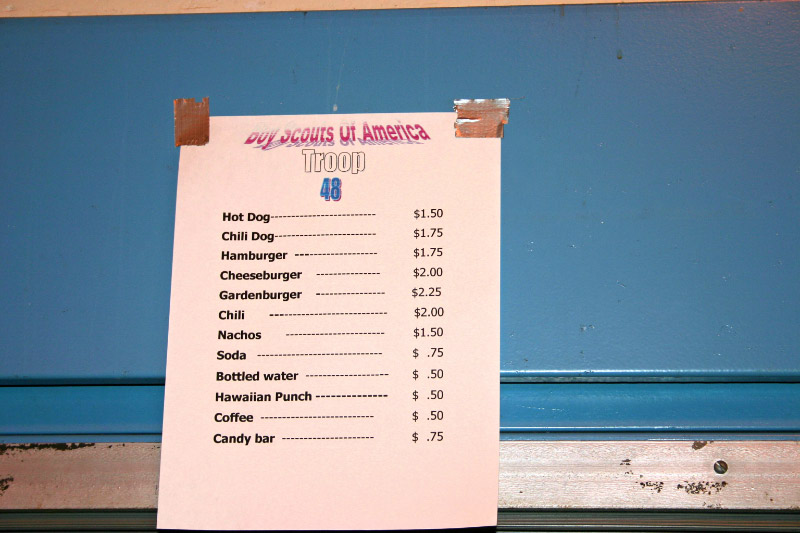 Boy Scouts Of America
Troop
48
Hot Dog----------------------- $1.50
Chili Dog---------------------- $1.75
Hamburger ------------------ $1.75
Cheeseburger -------------- $2.00
Gardenburger --------------- $2.25
Chili ------------------------- $2.00
Nachos --------------------- $1.50
Soda -------------------------- $ .75
Bottled water ------------------ $ .50
Hawaiian Punch --------------- $ .50
Coffee ------------------------ $ .50
Candy bar ------------------- $ .75